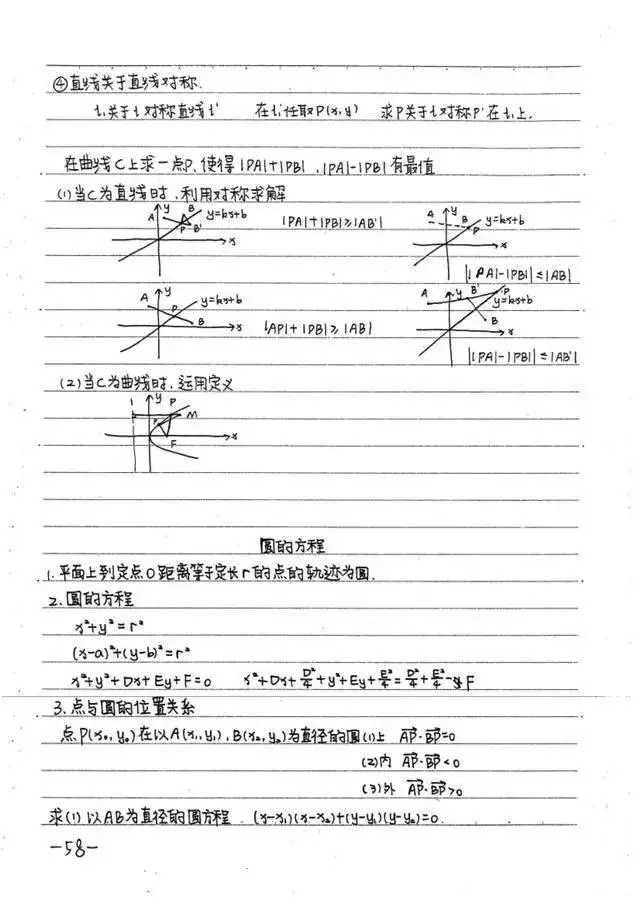 ④直线关于直线对称.
l₁关于l对称直线l' 在l₁'任取P(x,y) 求P关于l对称P'在l₁上.
在曲线C上求一点P,使得|PA|+|PB|,|PA|-|PB|有最值
(1)当C为直线时,利用对称求解
A y B P B' y=kx+b x |PA|+|PB|≥|AB'| A y B P y=kx+b x
||PA|-|PB||≤|AB|
A y P y=kx+b B x |AP|+|PB|≥|AB| A y B' P y=kx+b B x
||PA|-|PB||≤|AB'|
(2)当C为曲线时,运用定义
y P M
P F x
圆的方程
1.平面上到定点O距离等于定长r的点的轨迹为圆.
2.圆的方程
x²+y²=r²
(x-a)²+(y-b)²=r²
x²+y²+Dx+Ey+F=0 x²+Dx+D²/4+y²+Ey+E²/4=D²/4+E²/4-F
3.点与圆的位置关系
点P(x₀,y₀)在以A(x₁,y₁),B(x₂,y₂)为直径的圆(1)上 AP·BP=0
(2)内 AP·BP<0
(3)外 AP·BP>0
求(1)以AB为直径的圆方程. (x-x₁)(x-x₂)+(y-y₁)(y-y₂)=0.
-58-